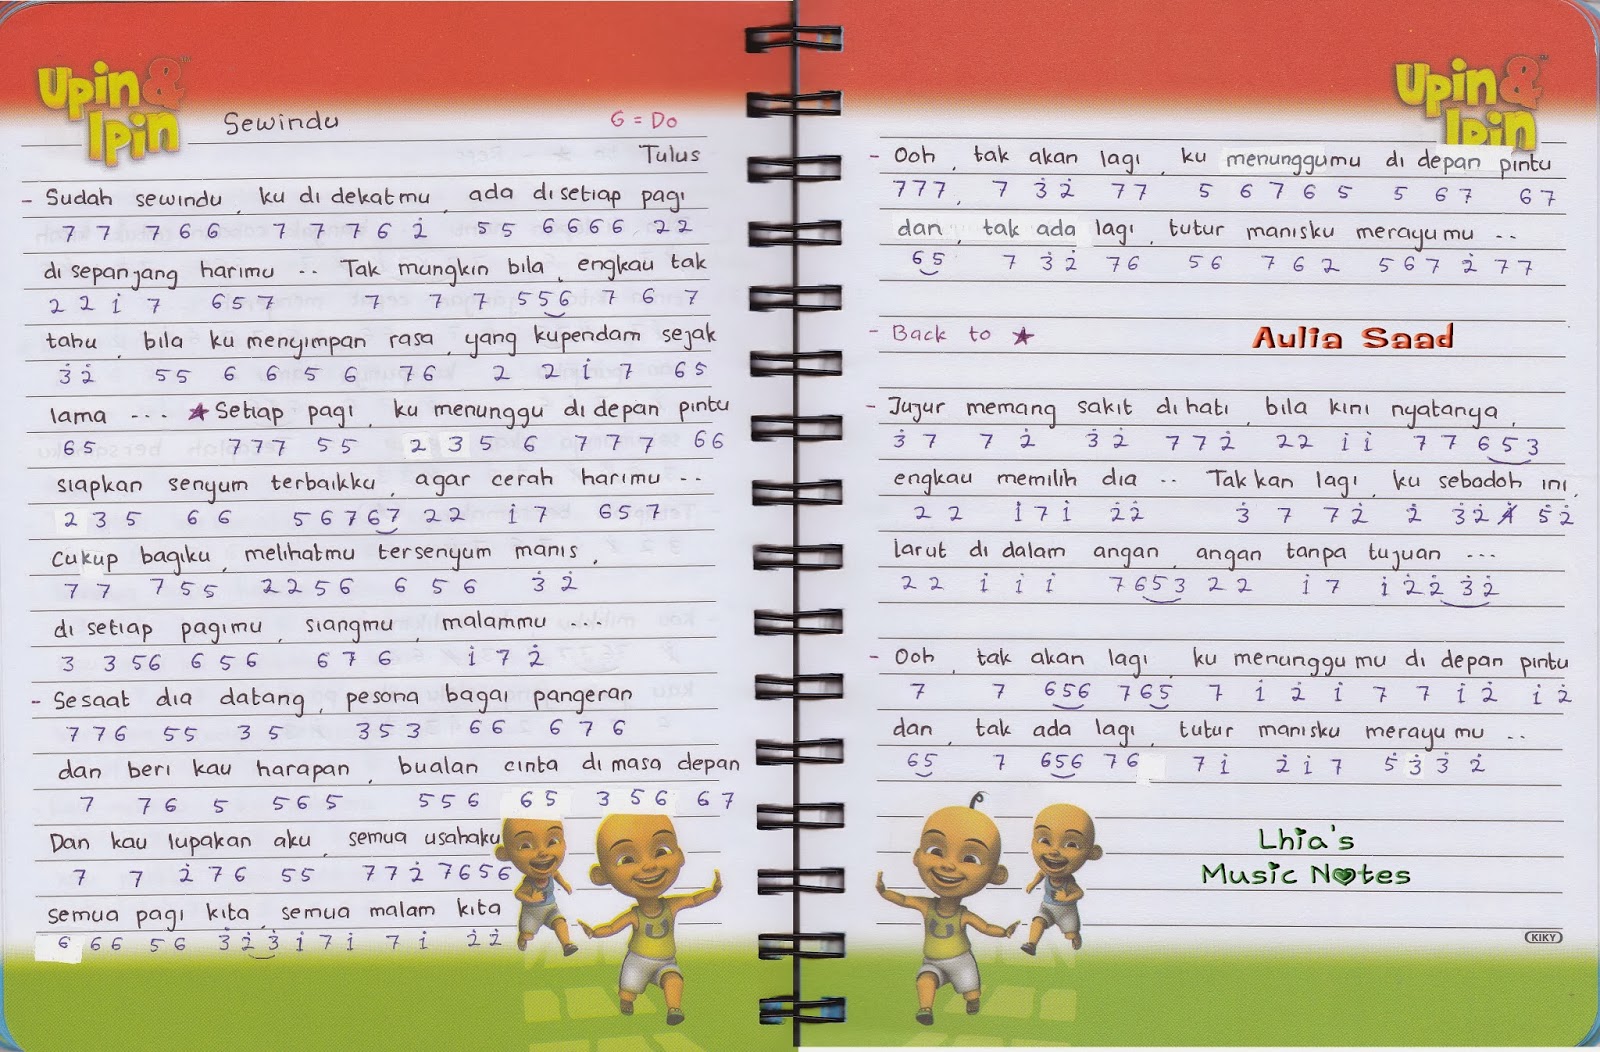 Upin & Ipin
Sewindu G = Do
Tulus
- Sudah sewindu, ku di dekatmu, ada disetiap pagi
7 7 7 6 6 7 7 7 6 2̇ 5 5 6 6 6 6 2 2
di sepanjang harimu .. Tak mungkin bila, engkau tak
2 2 1̇ 7 6 5 7 7 7 7 5 5 6 7 6 7
tahu, bila ku menyimpan rasa, yang kupendam sejak
3̇ 2̇ 5 5 6 6 5 6 7 6 2 2 1̇ 7 6 5
lama ... ★ Setiap pagi, ku menunggu di depan pintu
6 5 7 7 7 5 5 2 3 5 6 7 7 7 6 6
siapkan senyum terbaikku, agar cerah harimu ..
2 3 5 6 6 5 6 7 6 7 2 2 1̇ 7 6 5 7
Cukup bagiku, melihatmu tersenyum manis,
7 7 7 5 5 2 2 5 6 6 5 6 3̇ 2̇
di setiap pagimu, siangmu, malammu ....
3 3 5 6 6 5 6 6 7 6 1̇ 7 2̇
- Sesaat dia datang, pesona bagai pangeran
7 7 6 5 5 3 5 3 5 3 6 6 6 7 6
dan beri kau harapan, bualan cinta di masa depan
7 7 6 5 5 6 5 5 5 6 6 5 3 5 6 6 7
Dan kau lupakan aku, semua usahaku
7 7 2̇ 7 6 5 5 7 7 2̇ 7 6 5 6
semua pagi kita, semua malam kita
6 6 6 5 6 3̇ 2̇ 3̇ 1̇ 7 1̇ 7 1̇ 2̇ 2̇
Upin & Ipin
- Ooh, tak akan lagi, ku menunggumu di depan pintu
7 7 7, 7 3̇ 2̇ 7 7 5 6 7 6 5 5 6 7 6 7
dan, tak ada lagi, tutur manisku merayumu ..
6 5 7 3̇ 2̇ 7 6 5 6 7 6 2 5 6 7 2̇ 7 7
- Back to ★ Aulia Saad
- Jujur memang sakit di hati, bila kini nyatanya,
3̇ 7 7 2̇ 3̇ 2̇ 7 7 2̇ 2 2 1̇ 1̇ 7 7 6 5 3
engkau memilih dia .. Tak kan lagi, ku sebodoh ini,
2 2 1̇ 7 1̇ 2̇ 2̇ 3̇ 7 7 2̇ 2̇ 3̇ 2̇ 5̇ 2̇
larut di dalam angan, angan tanpa tujuan ...
2 2 1̇ 1̇ 1̇ 7 6 5 3 2 2 1̇ 7 1̇ 2̇ 2̇ 3̇ 2̇
- Ooh, tak akan lagi, ku menunggu mu di depan pintu
7 7 6 5 6 7 6 5 7 1̇ 2̇ 1̇ 7 7 1̇ 2̇ 1̇ 2̇
dan, tak ada lagi, tutur manisku merayu mu ..
6 5 7 6 5 6 7 6 7 1̇ 2̇ 1̇ 7 5̇ 3̇ 3̇ 2̇
Lhia's
Music Notes
KIKY